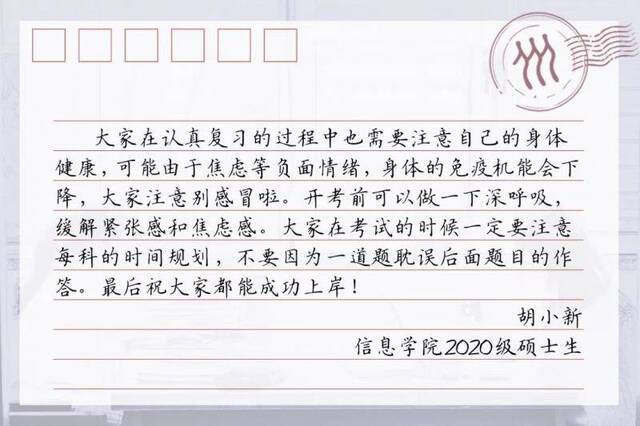 大家在认真复习的过程中也需要注意自己的身体
健康，可能由于焦虑等负面情绪，身体的免疫机能会下
降，大家注意别感冒啦。开考前可以做一下深呼吸，
缓解紧张感和焦虑感。大家在考试的时候一定要注意
每科的时间规划，不要因为一道题耽误后面题目的作
答。最后祝大家都能成功上岸！
胡小新
信息学院2020级硕士生